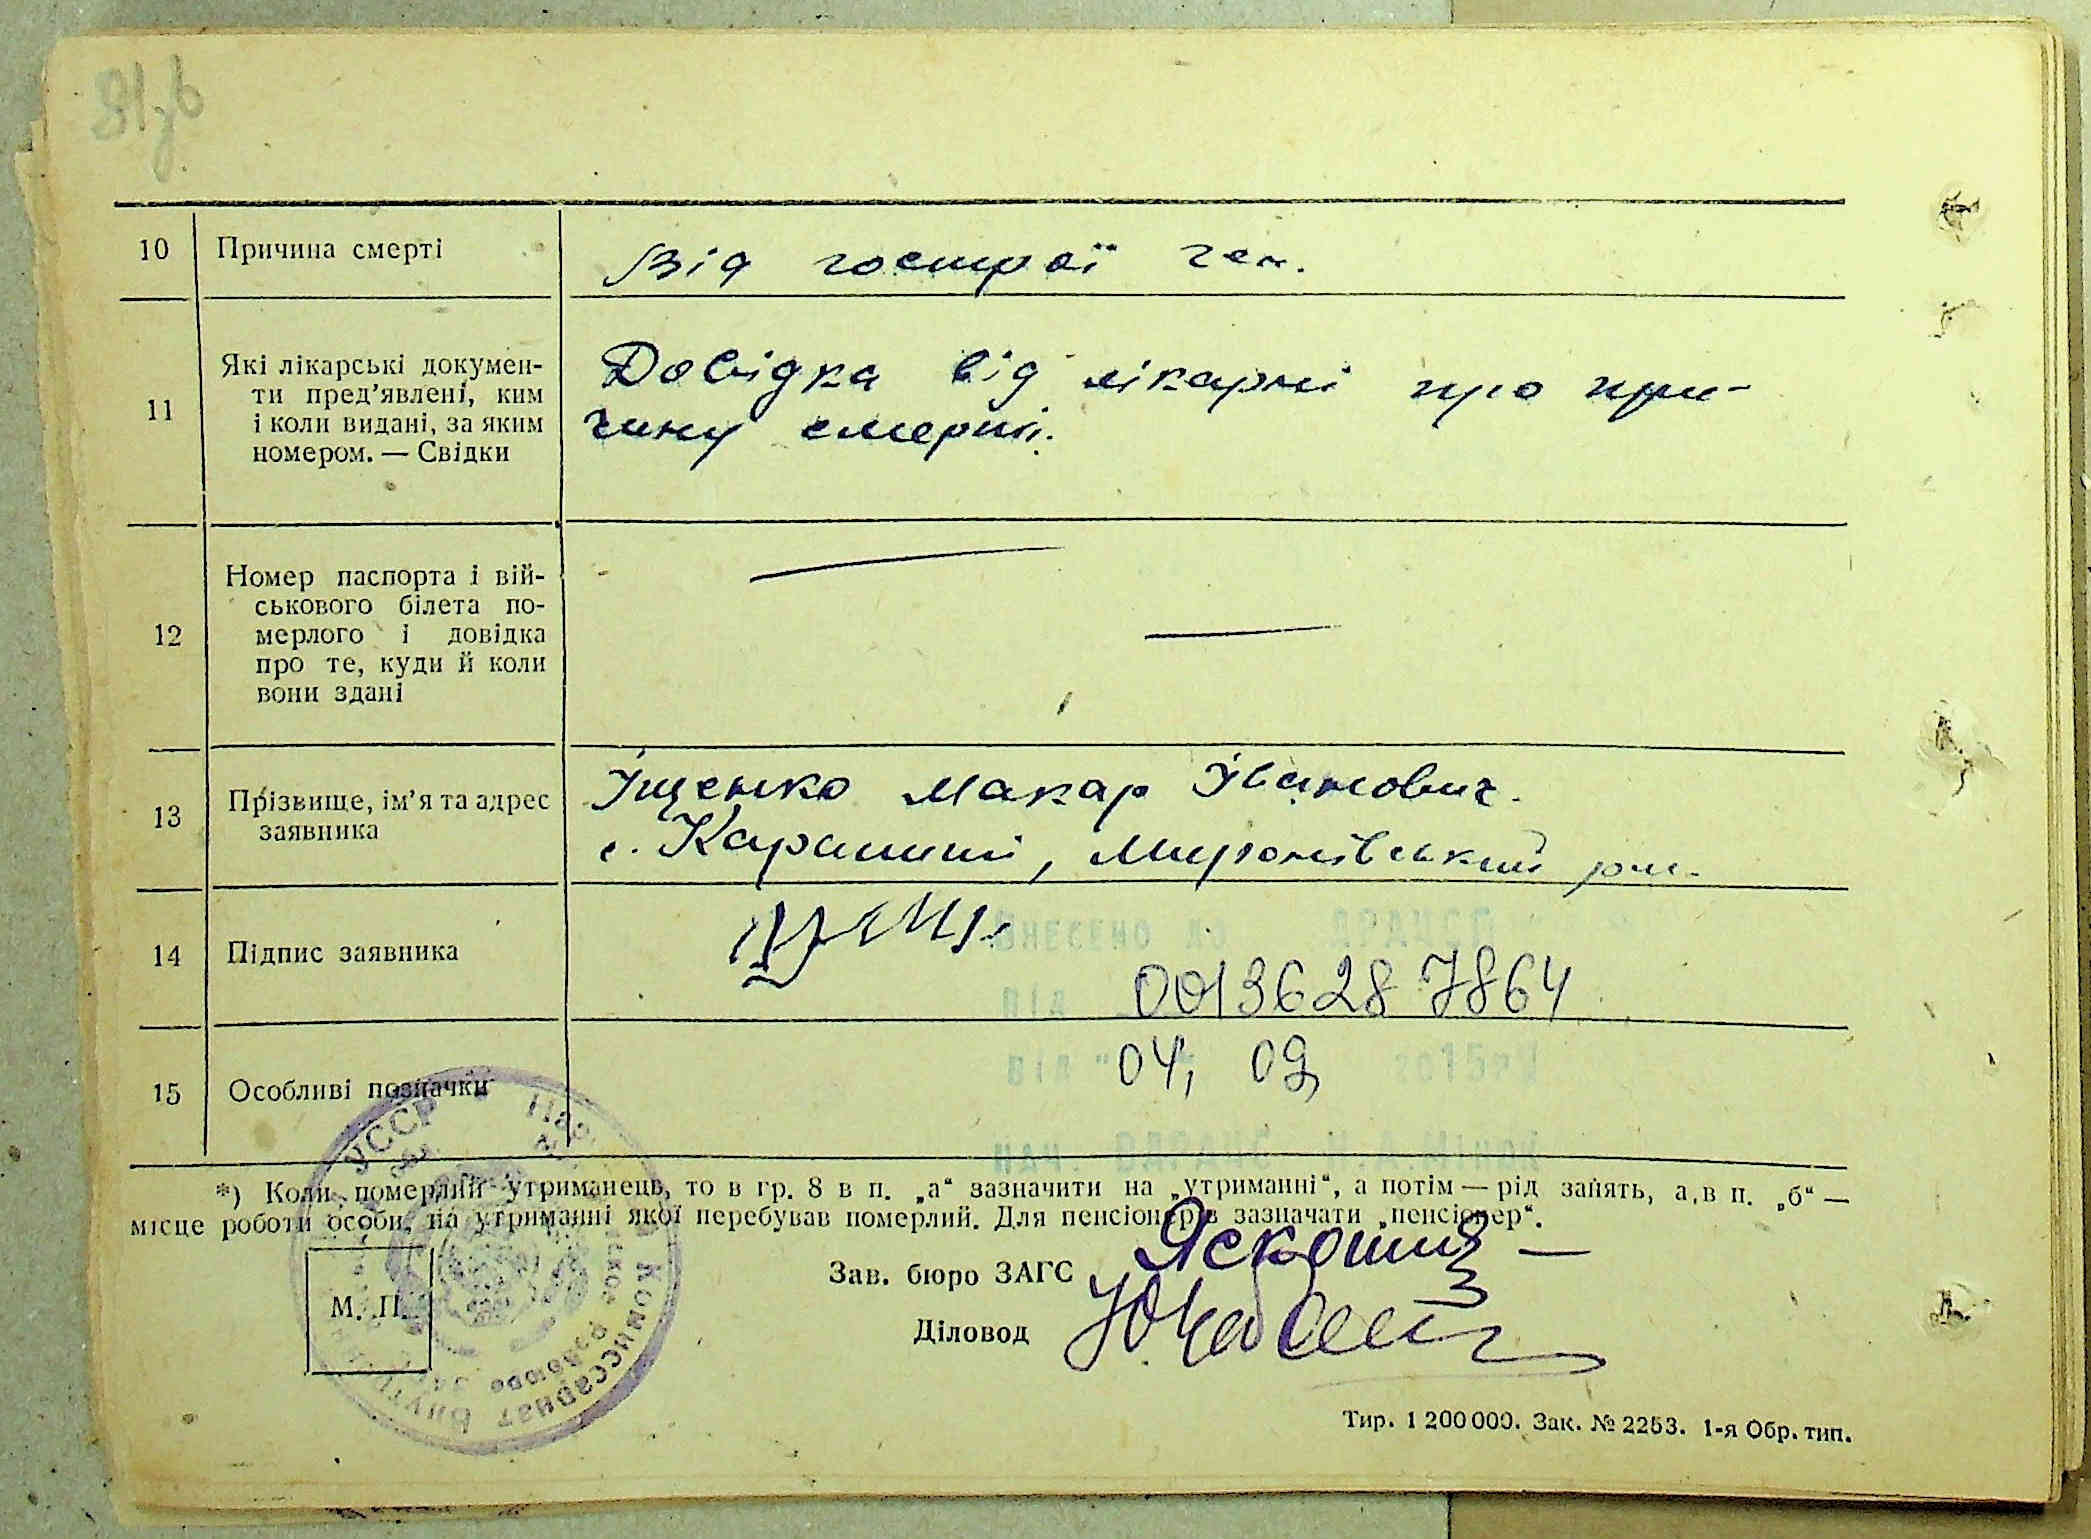 81зв
10 Причина смерті
Від гострої
11 Які лікарські докумен-
ти пред’явлені, ким
і коли видані, за яким
номером. — Свідки
Довідка від лікарні про при-
чину смерті.
12 Номер паспорта і вій-
ськового білета по-
мерлого і довідка
про те, куди й коли
вони здані
13 Прізвище, ім’я та адрес
заявника
Іщенко Макар Іванович.
с. Карапиші, Миронівський р-н.
14 Підпис заявника
ВНЕСЕНО ДО ДРАЦСГ
ВІД 00136287864
15 Особливі позначки
ВІД "04, 09, 2015р
НАЧ. ВДРАЦС
*) Коли померлий утриманець, то в гр. 8 в п. „а“ зазначити на „утриманні“, а потім — рід занять, а в п. „б“ —
місце роботи особи, на утриманні якої перебував померлий. Для пенсіонерів зазначати „пенсіонер“.
М. П.
УССР
Комиссариат Внутр
Зав. бюро ЗАГС
Діловод
Тир. 1 200 000. Зак. № 2253. 1-я Обр. тип.